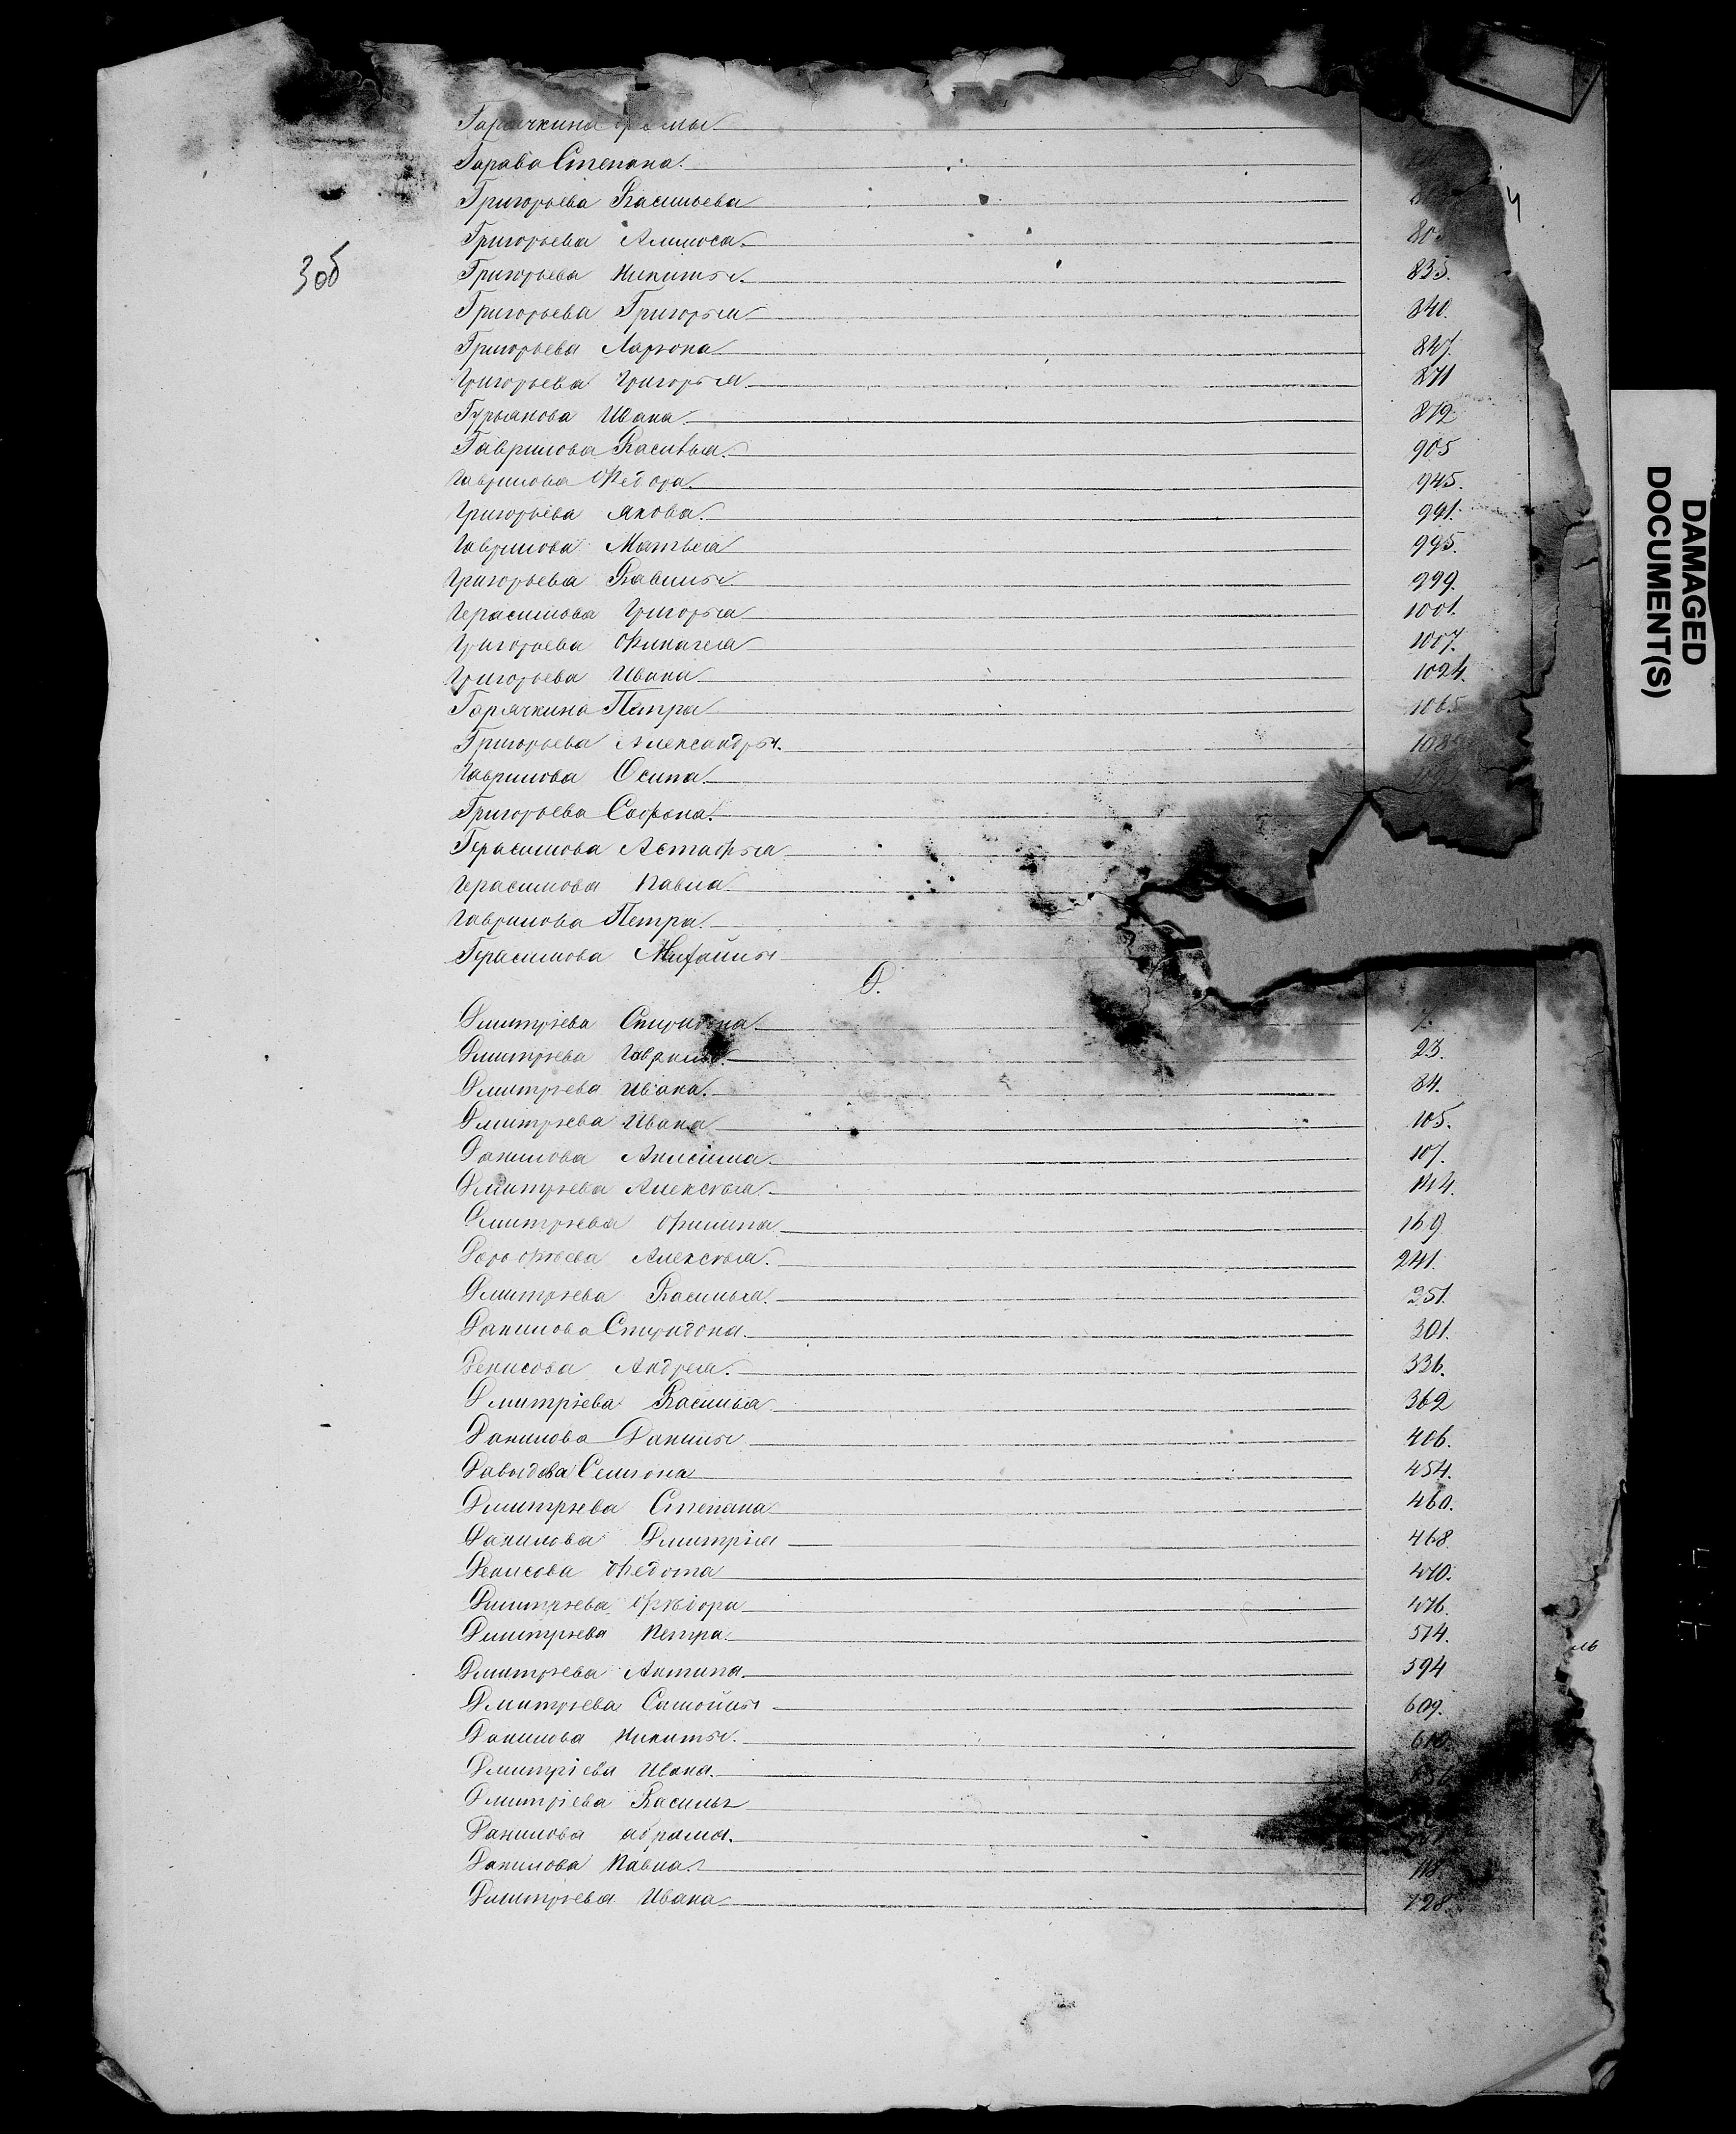 Горячкина Фомы
Гарава Степана.
Григорьева Васильева
Григорьева Амплоса. 805
Григорьева Никиты. 835.
Григорьева Григорья 840.
Григорьева Ларіона 847.
Григорьева Григорья 871
Гурьянова Ивана. 879.
Гаврилова Василья. 905
Гаврилова Федора. 945.
Григорьева Якова. 991.
Гаврилова Матвея 995.
Григорьева Гаврилы 999.
Герасимова Григорья 1001.
Григорьева Финагея 1007.
Григорьева Ивана 1024.
Горячкина Петра 1065
Григорьева Александры. 1089
Гаврилова Осипа
Григорьева Софона.
Герасимова Астафья
Герасимова Павла.
Гаврилова Петра.
Герасимова Михайлы
Д.
Дмитріева Спиридона 7.
Дмитріева Гаврилы 23.
Дмитріева Ивана. 84.
Дмитріева Ивана 105.
Данилова Анисима. 107.
Дмитріева Алексѣя. 144.
Дмитріева Филипа 169
Дорофѣева Алексѣя. 241.
Дмитріева Василья. 251.
Данилова Спиридона. 301.
Денисова Андрея. 336.
Дмитріева Василья 362
Данилова Данилы 406.
Давыдова Семіона 454.
Дмитріева Степана 460.
Данилова Дмитрія 468
Денисова Федота 470.
Дмитріева Фѣдора 476.
Дмитріева Петра. 514.
Дмитріева Антипа. 594
Дмитріева Самойлы 609.
Данилова Никиты. 610.
Дмитріева Ивана.
Дмитріева Василья
Данилова Абрама.
Данилова Павла.
Дмитріева Ивана 728.
30б
4
DAMAGED
DOCUMENT(S)
ль